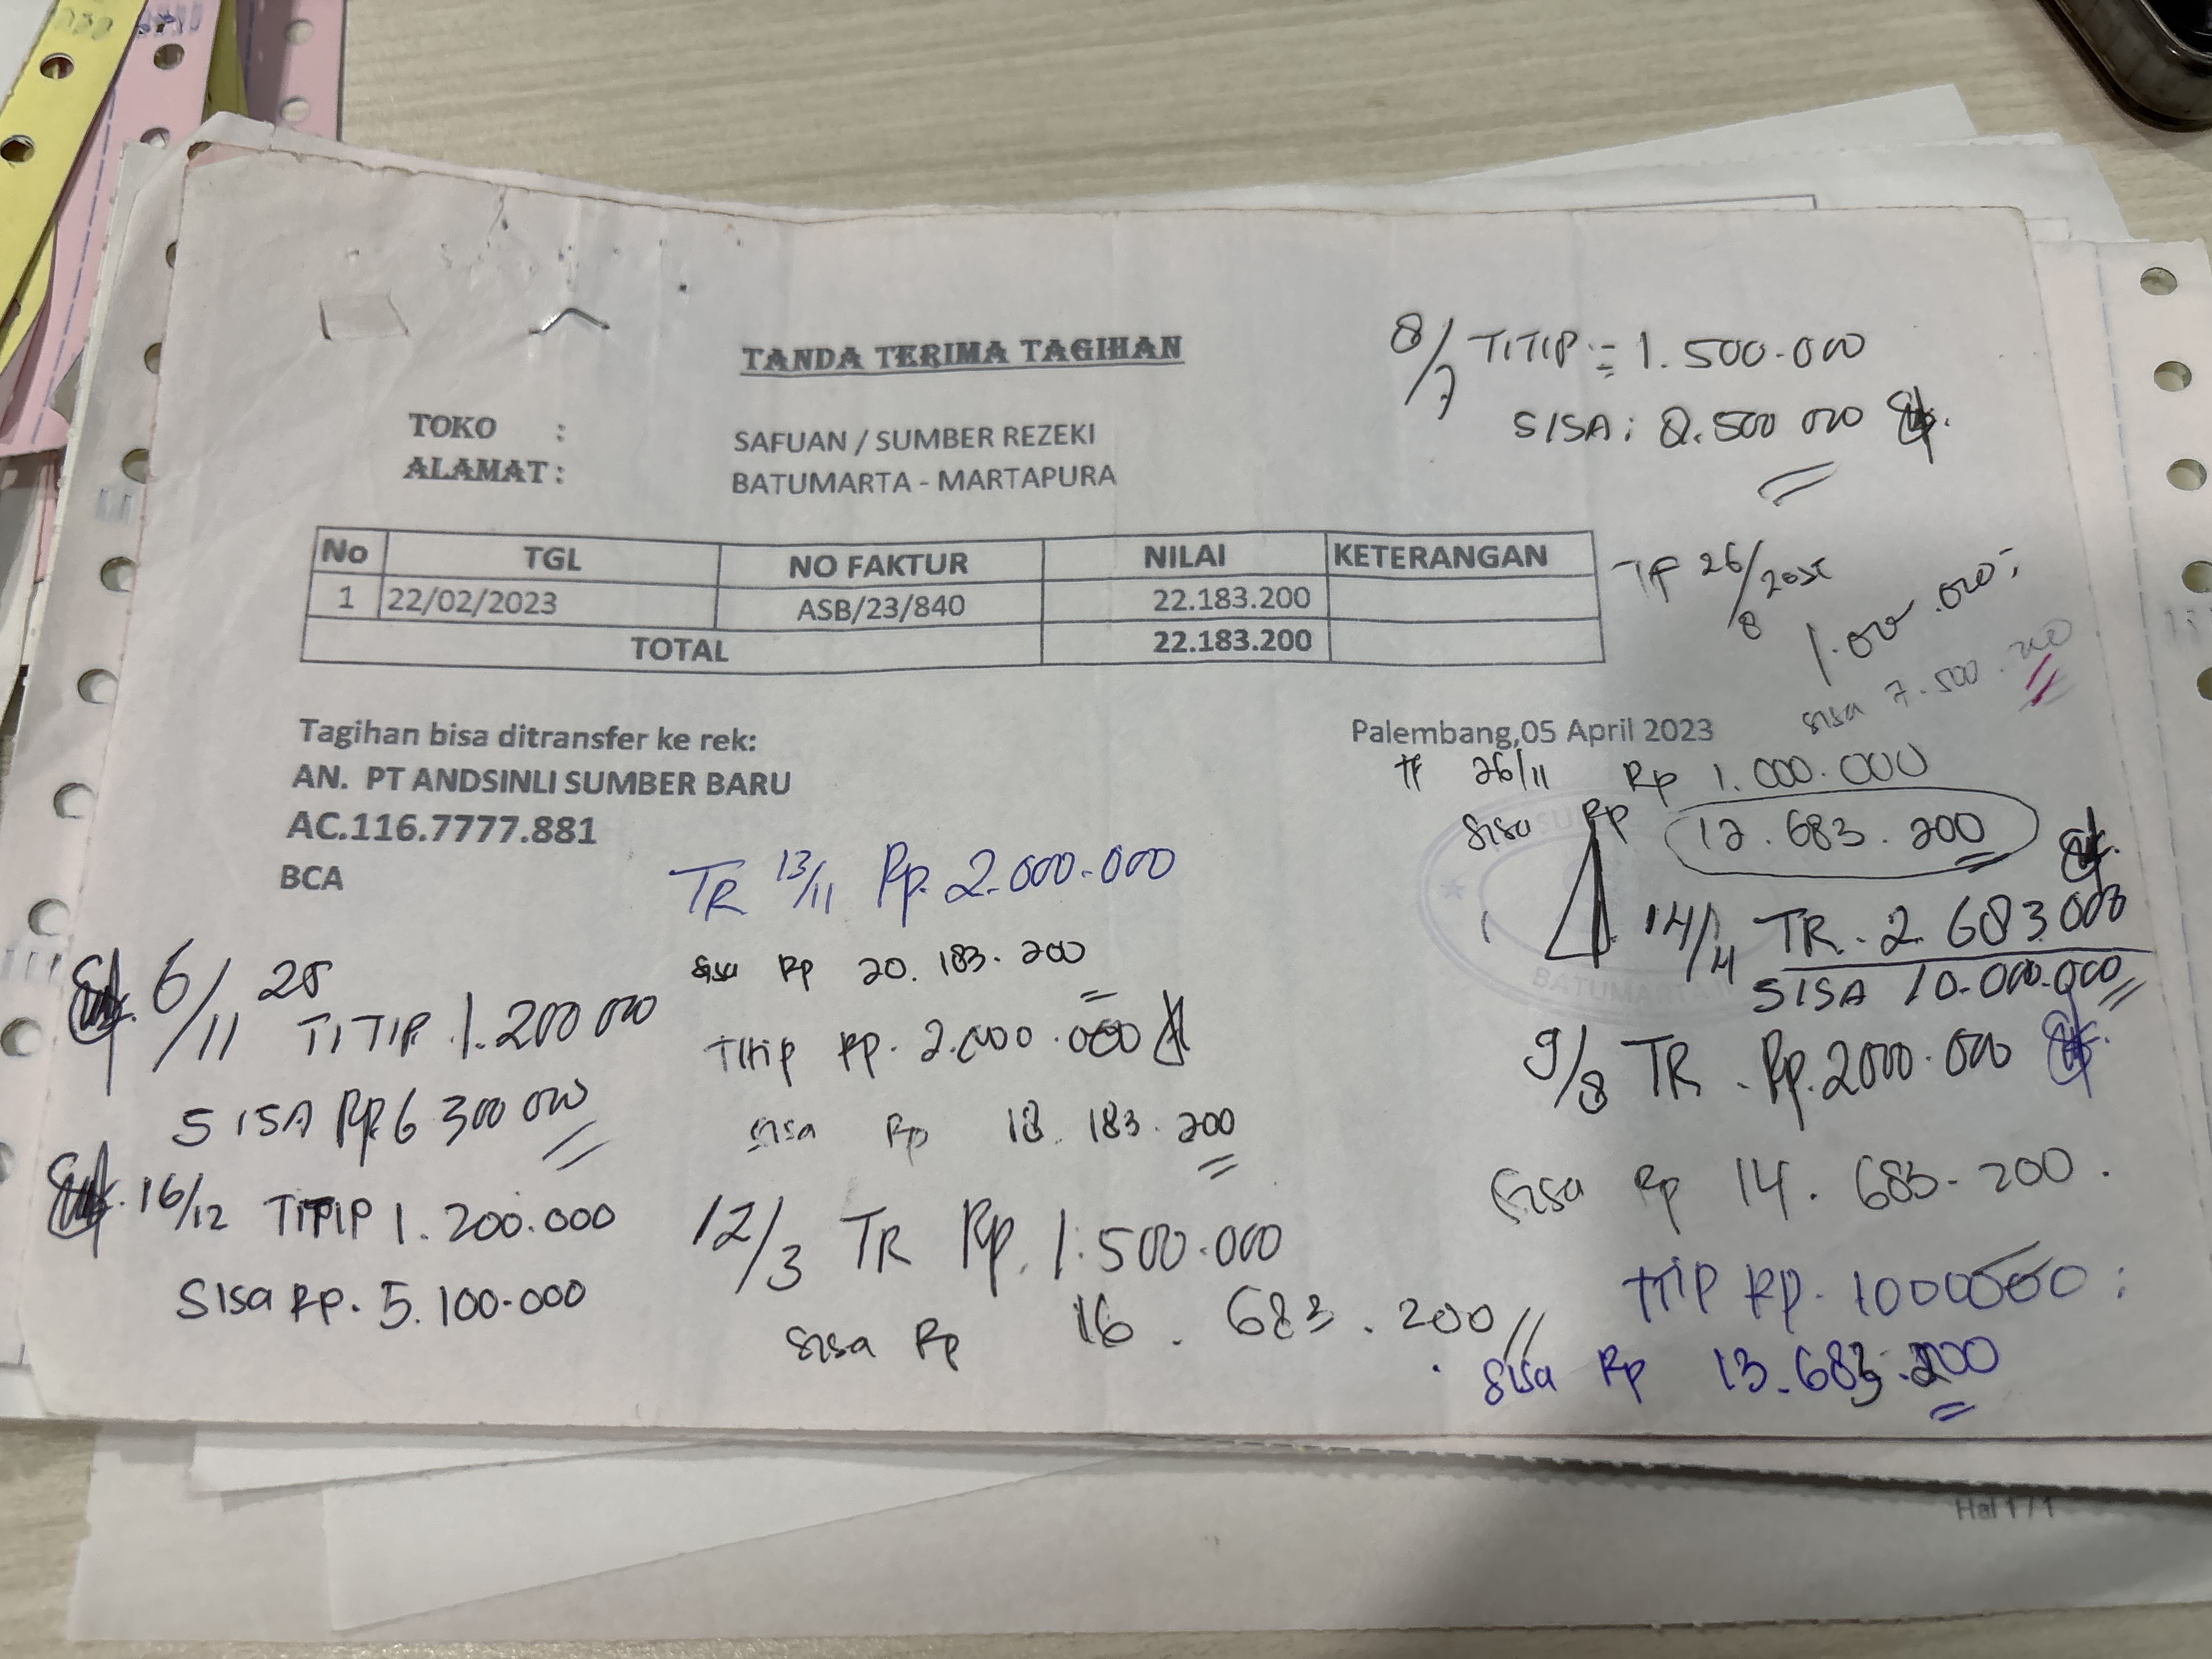 TANDA TERIMA TAGIHAN
TOKO : SAFUAN / SUMBER REZEKI
ALAMAT : BATUMARTA - MARTAPURA
8/7 TITIP := 1.500.000
SISA : 8.500 000
No TGL NO FAKTUR NILAI KETERANGAN
1 22/02/2023 ASB/23/840 22.183.200
TOTAL 22.183.200
TF 26/8
1.000.000;
sisa 7.500.000
Tagihan bisa ditransfer ke rek:
AN. PT ANDSINLI SUMBER BARU
AC.116.7777.881
BCA
Palembang,05 April 2023
TF 26/11 Rp 1.000.000
sisa Rp 12.683.200
14/4 TR. 2 683 000
SISA 10.000.000
9/8 TR. Rp.2000.000
Sisa Rp 14.683.200.
Titip Rp. 1000000;
Sisa Rp 13.683.200
TR 13/11 Rp. 2.000.000
sisa Rp 20.183.200
Titip Rp. 2.000.000
sisa Rp 18.183.200
12/3 TR Rp. 1.500.000
sisa Rp 16.683.200
6/11 25 TITIP 1.200 000
SISA Rp 6 300 000
16/12 TITIP 1.200.000
Sisa Rp. 5.100.000
BATUMARTA
Hal 1 / 1